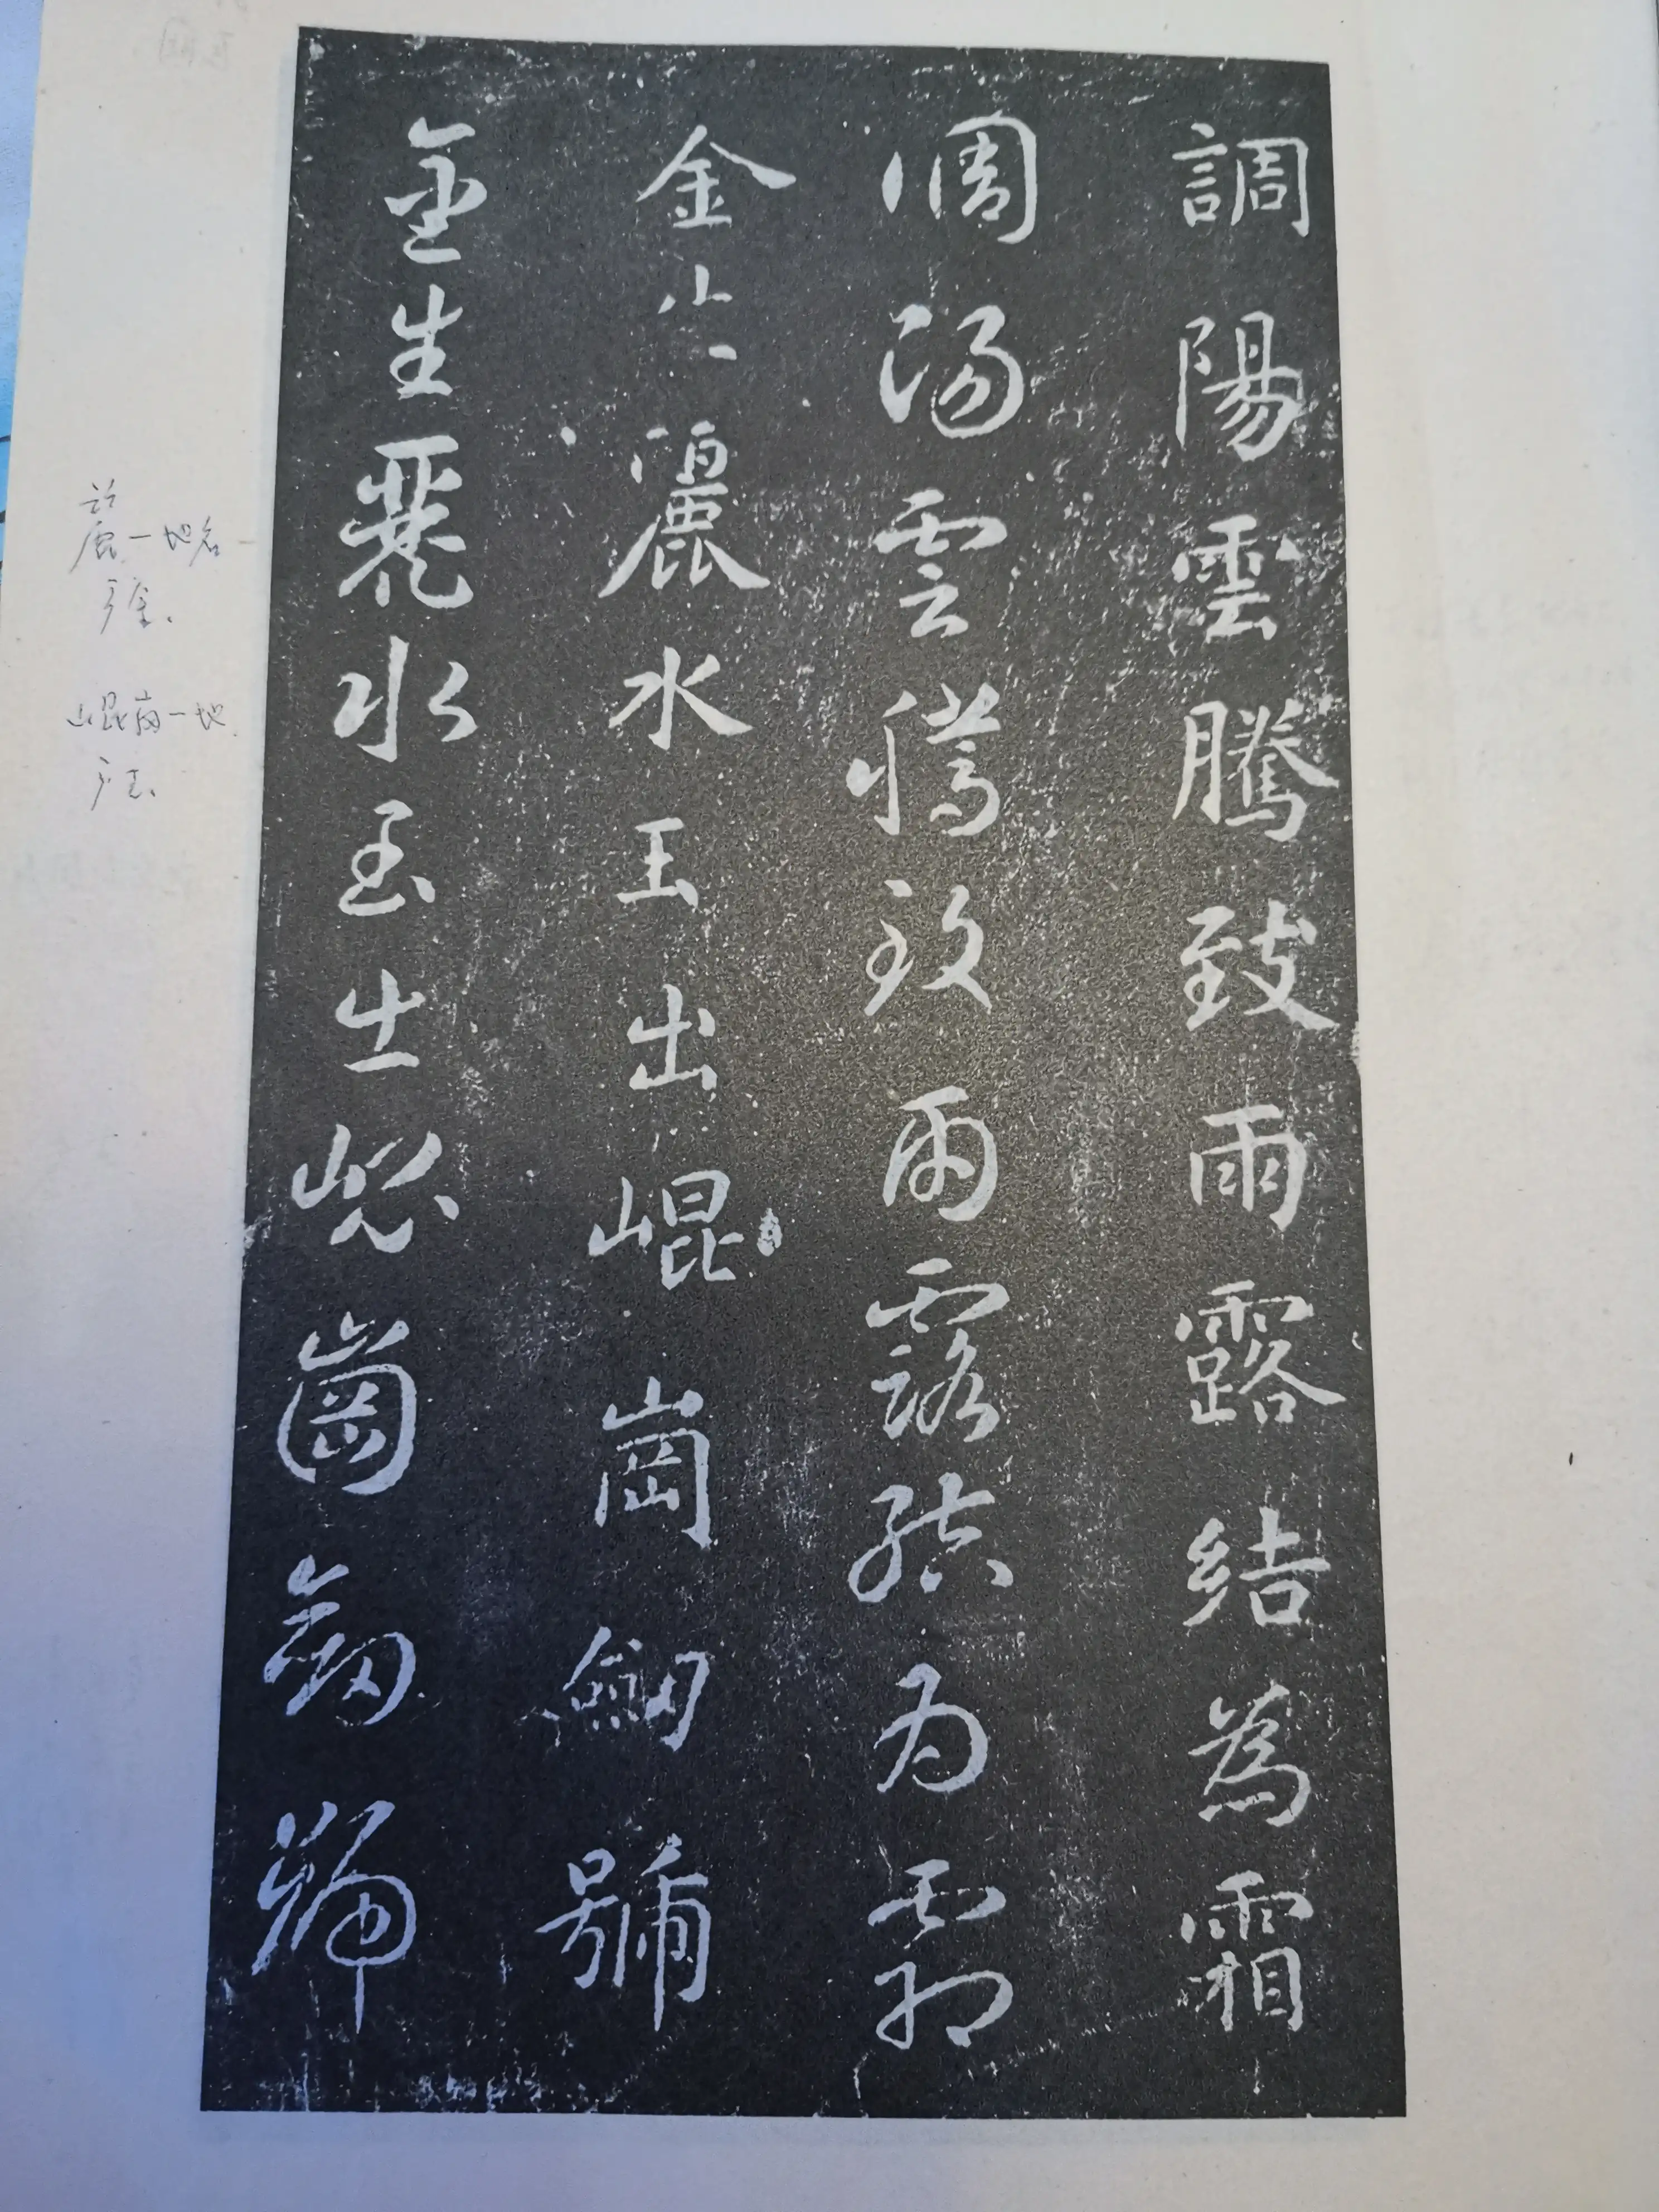 調陽雲騰致雨露結為霜
調陽雲騰致雨露結為霜
金生麗水玉出崐崗劎號
金生麗水玉出崐崗劎號
麗一地名
产金.
崐崗一地
产玉.